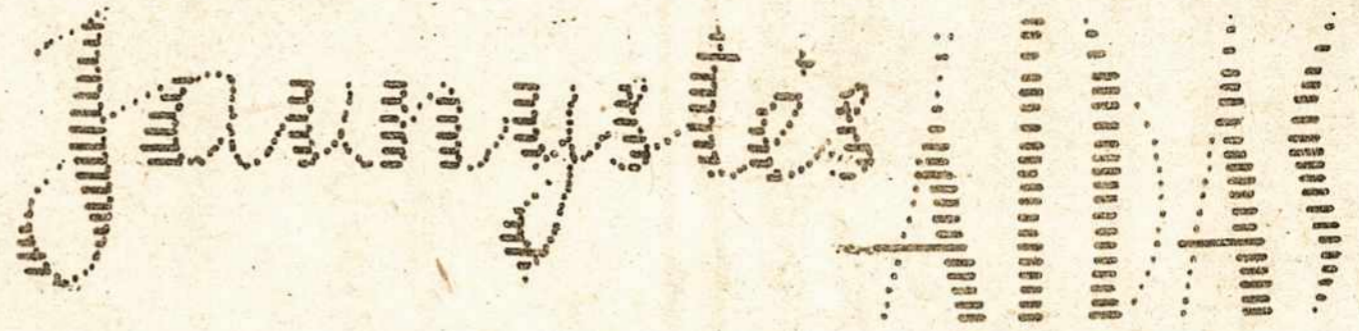 Jaunystės AIDAS